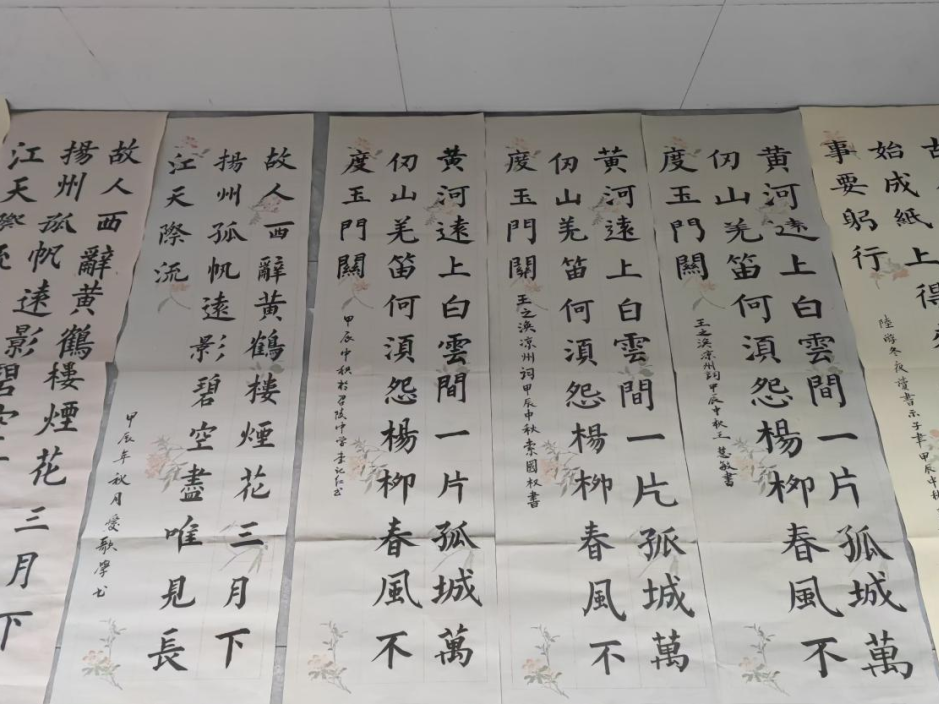 始成紙上得
事要躬行
陸游冬夜讀書示子聿甲辰中秋
黃河遠上白雲間一片孤城萬
仞山羌笛何湏怨楊柳春風不
度玉門關
王之渙凉州詞甲辰中秋王慧敏書
黃河遠上白雲間一片孤城萬
仞山羌笛何湏怨楊柳春風不
度玉門關
王之渙凉州詞甲辰中秋索國权書
黃河遠上白雲間一片孤城萬
仞山羌笛何湏怨楊柳春風不
度玉門關
甲辰中秋
故人西辭黃鶴樓煙花三月下
揚州孤帆遠影碧空盡唯見長
江天際流
甲辰年秋月愛歌學书
故人西辭黃鶴樓煙花三月下
揚州孤帆遠影碧空
江天際流